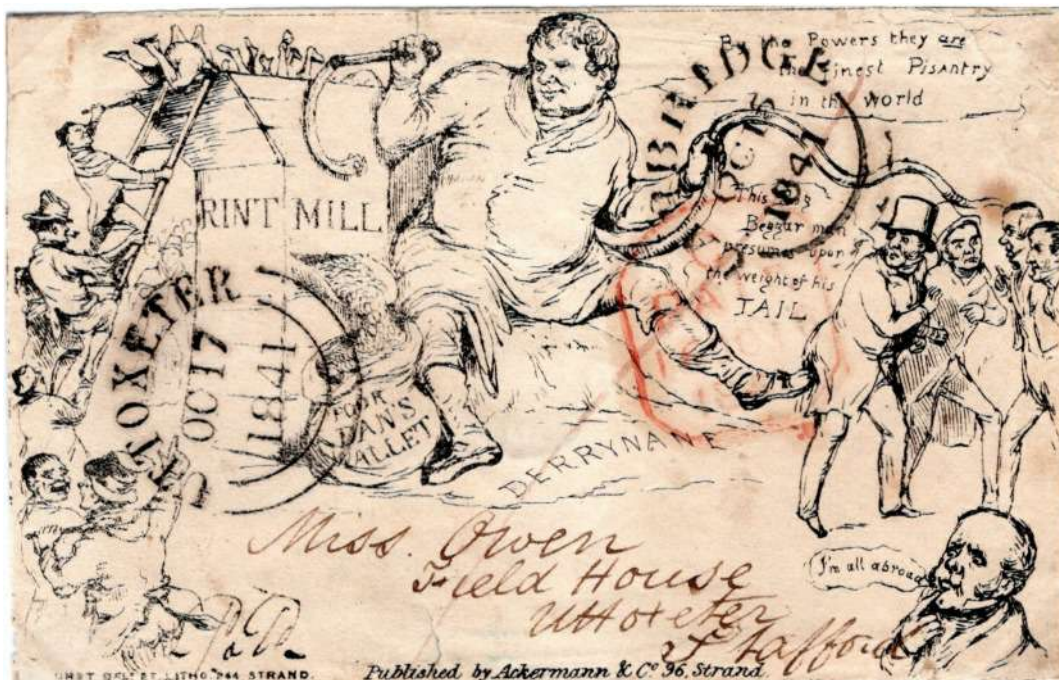 By the Powers they are
the finest Pisantry
in the world
BRIDGE
OC 15
1841
This big
Beggar man
presumes upon
the weight of his
TAIL
RINT MILL
UTTOXETER
OC 17
1841
POOR
DAN'S
WALLET
DERRYNANE
I'm all abroad
Miss. Owen
Field House
Uttoxeter
Stafford
Pd.
DELT ET LITHO. STRAND.
Published by Ackermann & Co. 96, Strand.